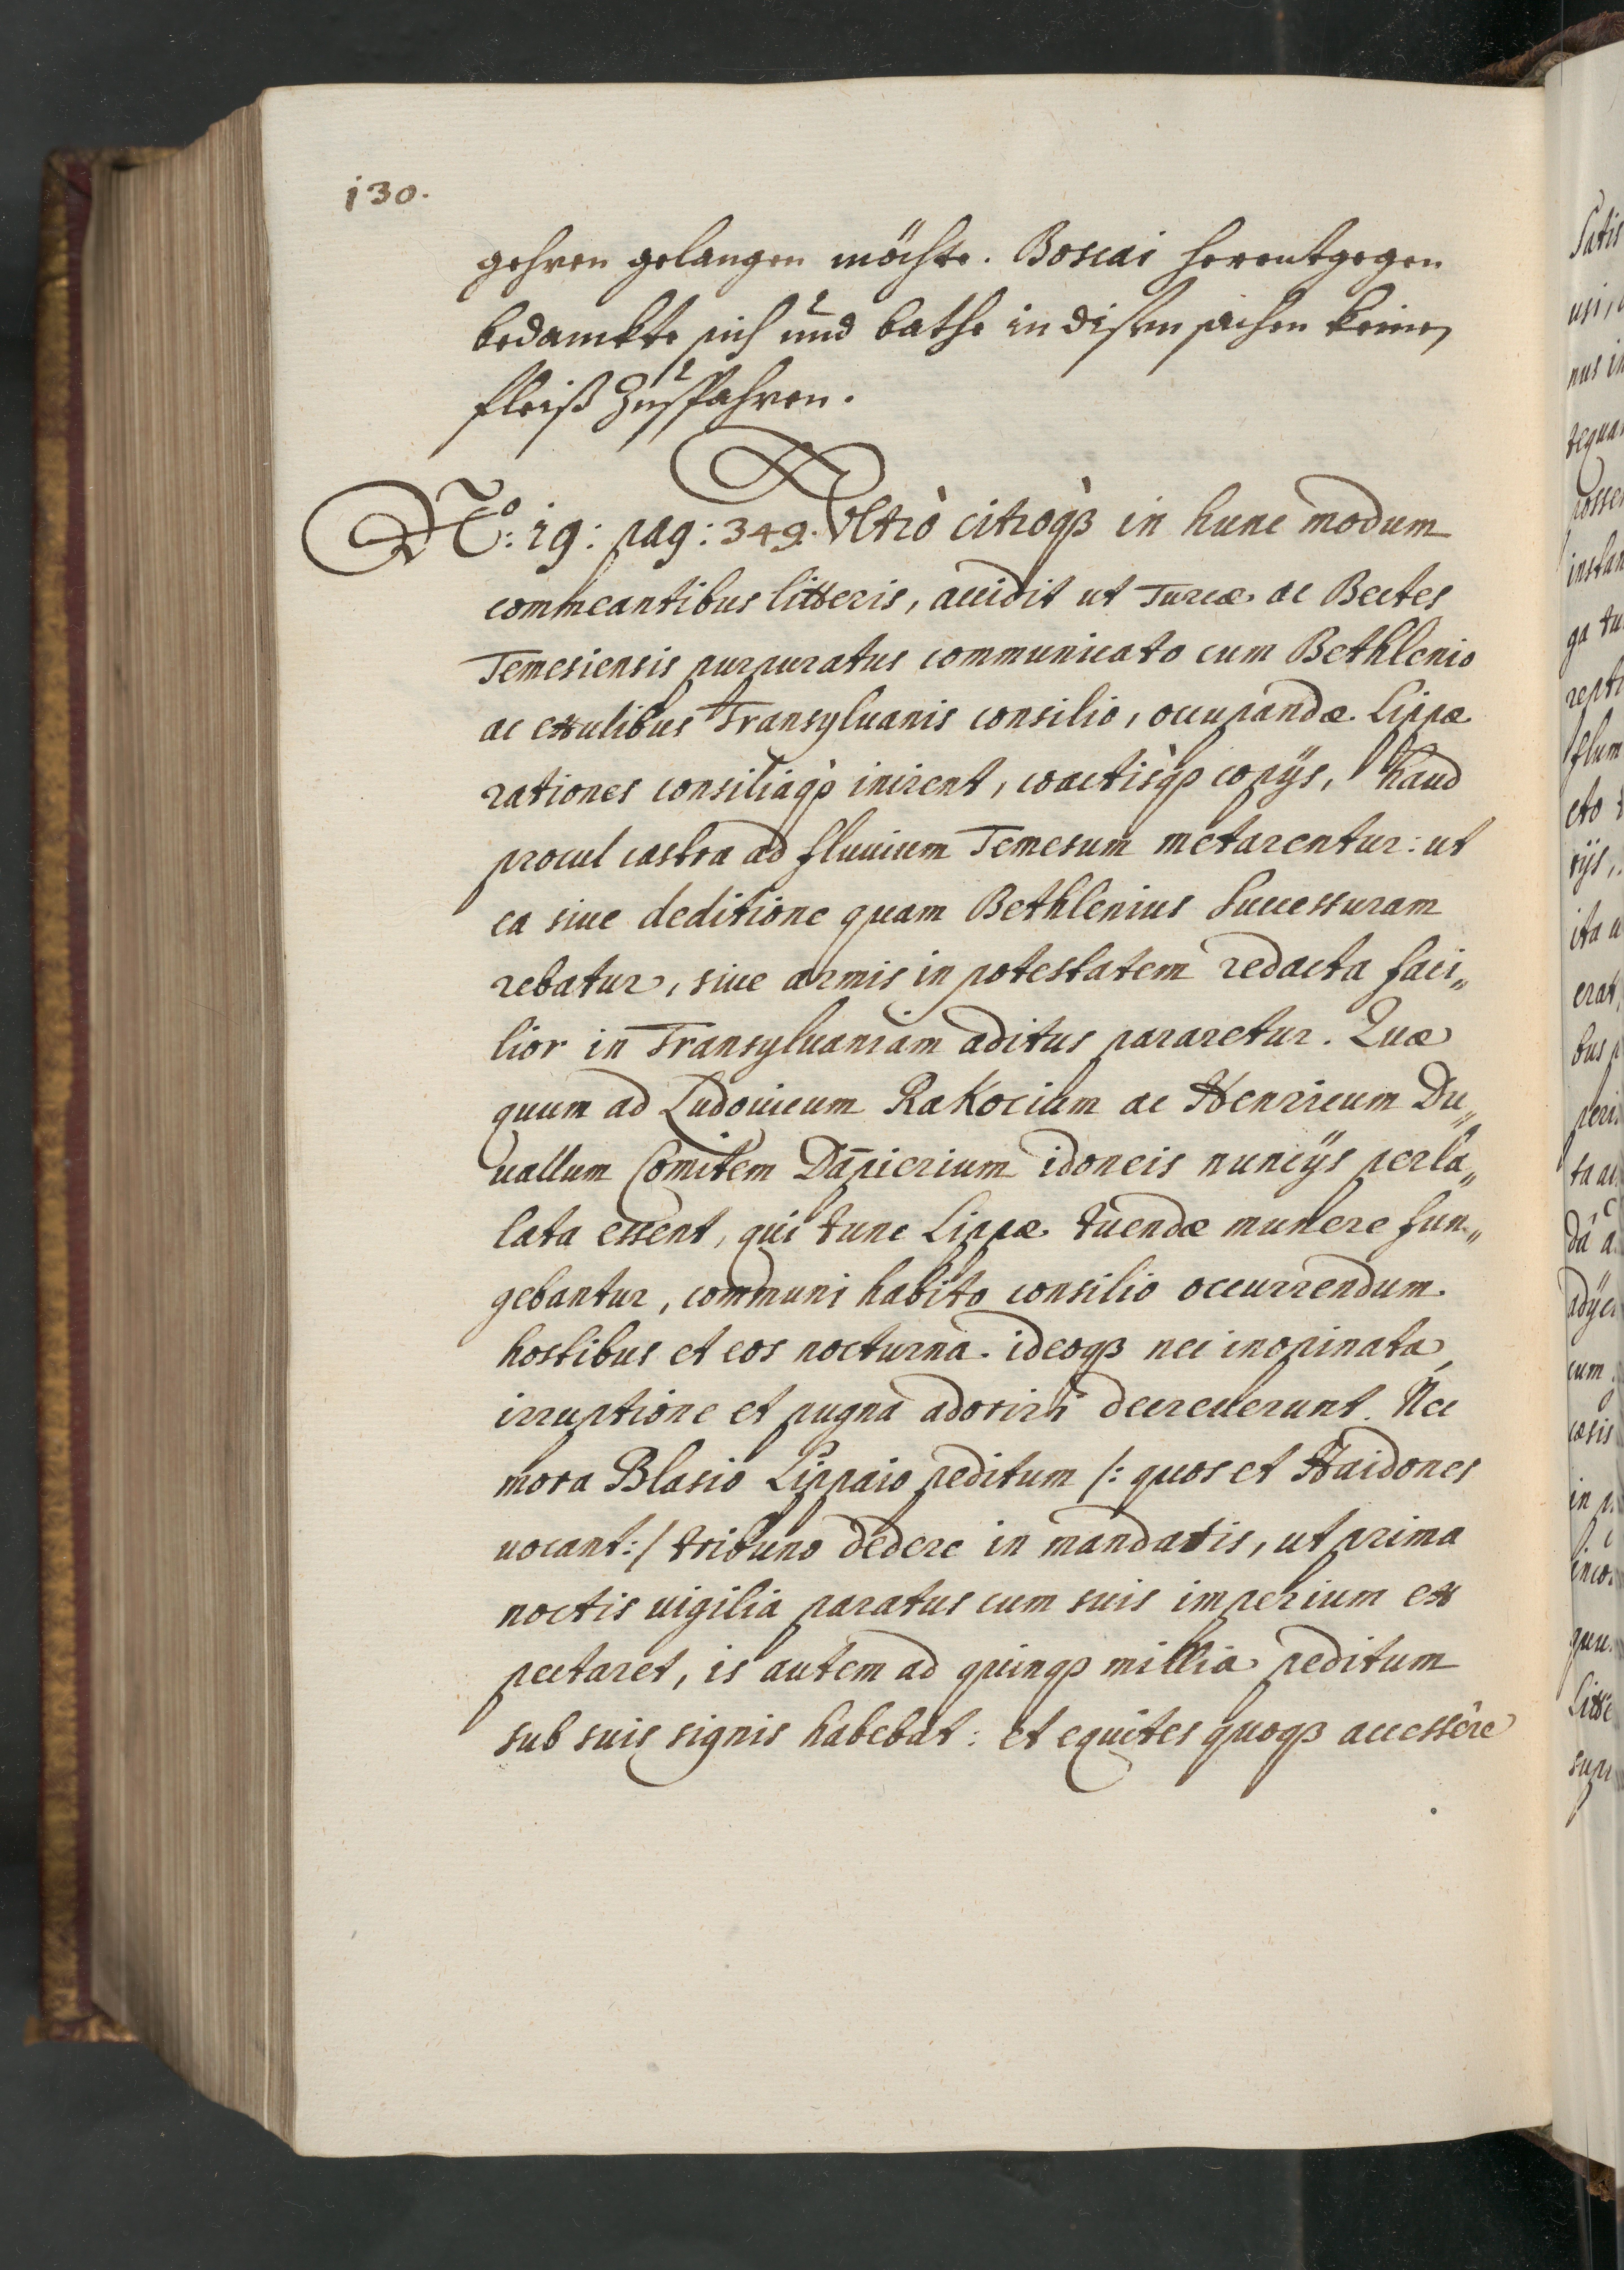 130.
gehren gelangen möchte. Boscai herentgegen
bedanckte sich und bathe in disen sachen keinen
fleiß zuspahren.
No: 19: pag: 349. Vltrò citroqꝫ in hunc modum
commeantibus litteris, accidit ut Turcæ ac Bectes
Temesiensis purpuratus communicato cum Bethlenio
ac exulibus Transyluanis consilio, occupandæ Lippæ
rationes consiliaqꝫ inirent, coactisqꝫ copÿs, haud
procul castra ad fluuium Temesum metarentur: ut
ea siue deditione quam Bethlenius Successuram
rebatur, siue armis in potestatem redacta faci„
lior in Transyluaniam aditus pararetur. Quæ
quum ad Ludouicum Rakocium ac Henricum Du„
uallum Comitem Dāpierium idoneis nuncÿs perla„
lata essent, qui tunc Lippæ tuendæ munere fun„
gebantur, communi habito consilio occurrendum
hostibus et eos nocturna ideoqꝫ nec inopinata
irruptione et pugnà adoriri decreuerunt. Nec
mora Blasio Lippaio peditum /: quos et Haidones
uocant :/ tribuno dedere in mandatis, ut prima
noctis uigilia paratus cum suis imperium ex
pectaret, is autem ad quinqꝫ millia peditum
sub suis signis habebat: et equites quoqꝫ accessêre